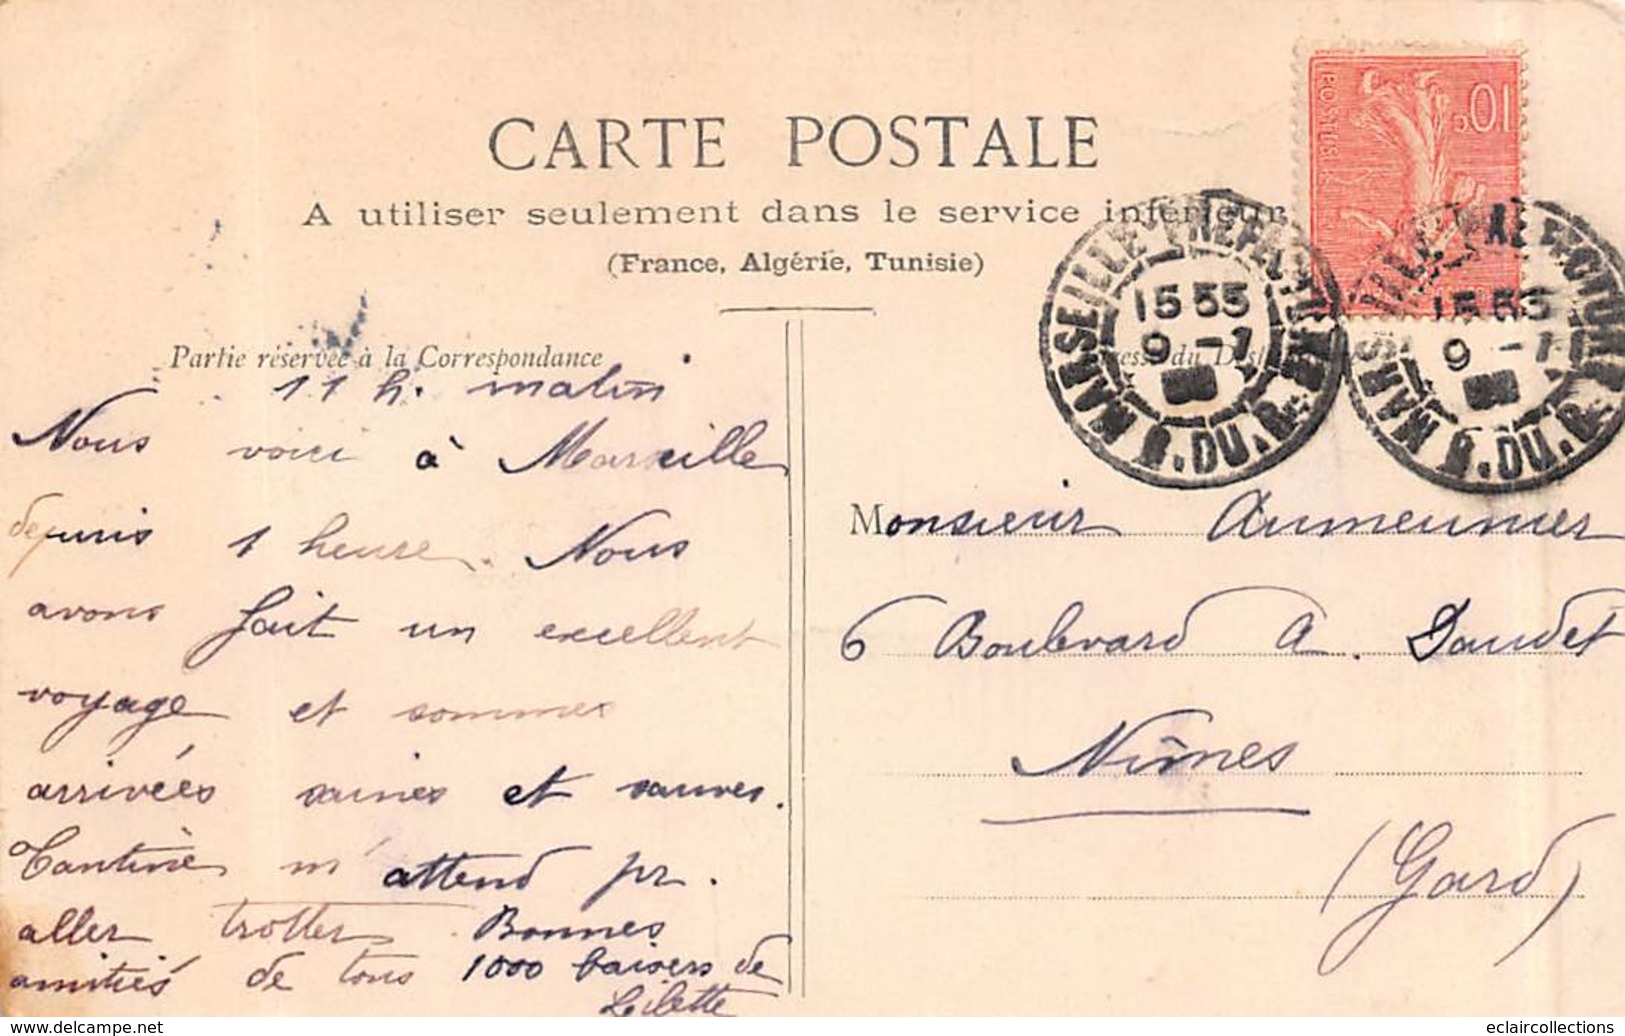 CARTE POSTALE
A utiliser seulement dans le service intérieur
(France, Algérie, Tunisie)
POSTES
10c
MARSEILLE PREFECTURE
15 55
9 -7
B. DU. R.
MARSEILLE PREFECTURE
15 55
9 -7
B. DU. R.
Partie réservée à la Correspondance
11 h. matin
Nous voici à Marseille
depuis 1 heure. Nous
avons fait un excellent
voyage et sommes
arrivées saines et sauves.
Tantine m'attend pr.
aller trotter. Bonnes
amitiés de tous 1000 baisers de
Lilette
Monsieur Aumeunier
6 Boulevard A. Daudet
Nîmes
(Gard)
www.delcampe.net
eclaircollections